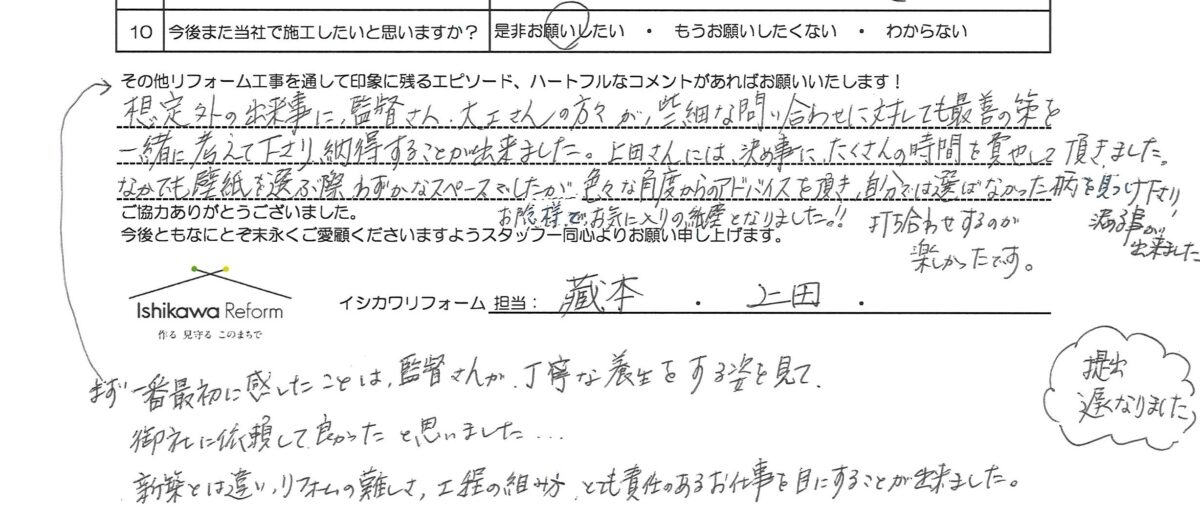 10 今後また当社で施工したいと思いますか? 是非お願いしたい ・ もうお願いしたくない ・ わからない
その他リフォーム工事を通して印象に残るエピソード、ハートフルなコメントがあればお願いいたします!
想定外の出来事に、監督さん、大工さんの方々が、些細な問い合わせに対しても最善の策を
一緒に考えて下さり、納得することが出来ました。上田さんには、決め事に、たくさんの時間を費やして頂きました。
なかでも壁紙を選ぶ際わずかなスペースでしたが色々な角度からのアドバイスを頂き、自分では選ばなかった柄を見つけ下さり
お陰様でお気に入りの紙壁となりました!! 打ち合わせするのが
楽しかったです。
出来ました
ご協力ありがとうございました。
今後ともなにとぞ末永くご愛顧くださいますようスタッフ一同心よりお願い申し上げます。
Ishikawa Reform
作る 見守る このまちで
イシカワリフォーム 担当: 藏本 ・ 上田 ・
まず一番最初に感じたことは、監督さんが、丁寧な養生をする姿を見て、
御社に依頼して良かったと思いました…
新築とは違い、リフォームの難しさ、工程の組み方、とても責任のあるお仕事を目にすることが出来ました。
提出
遅くなりました